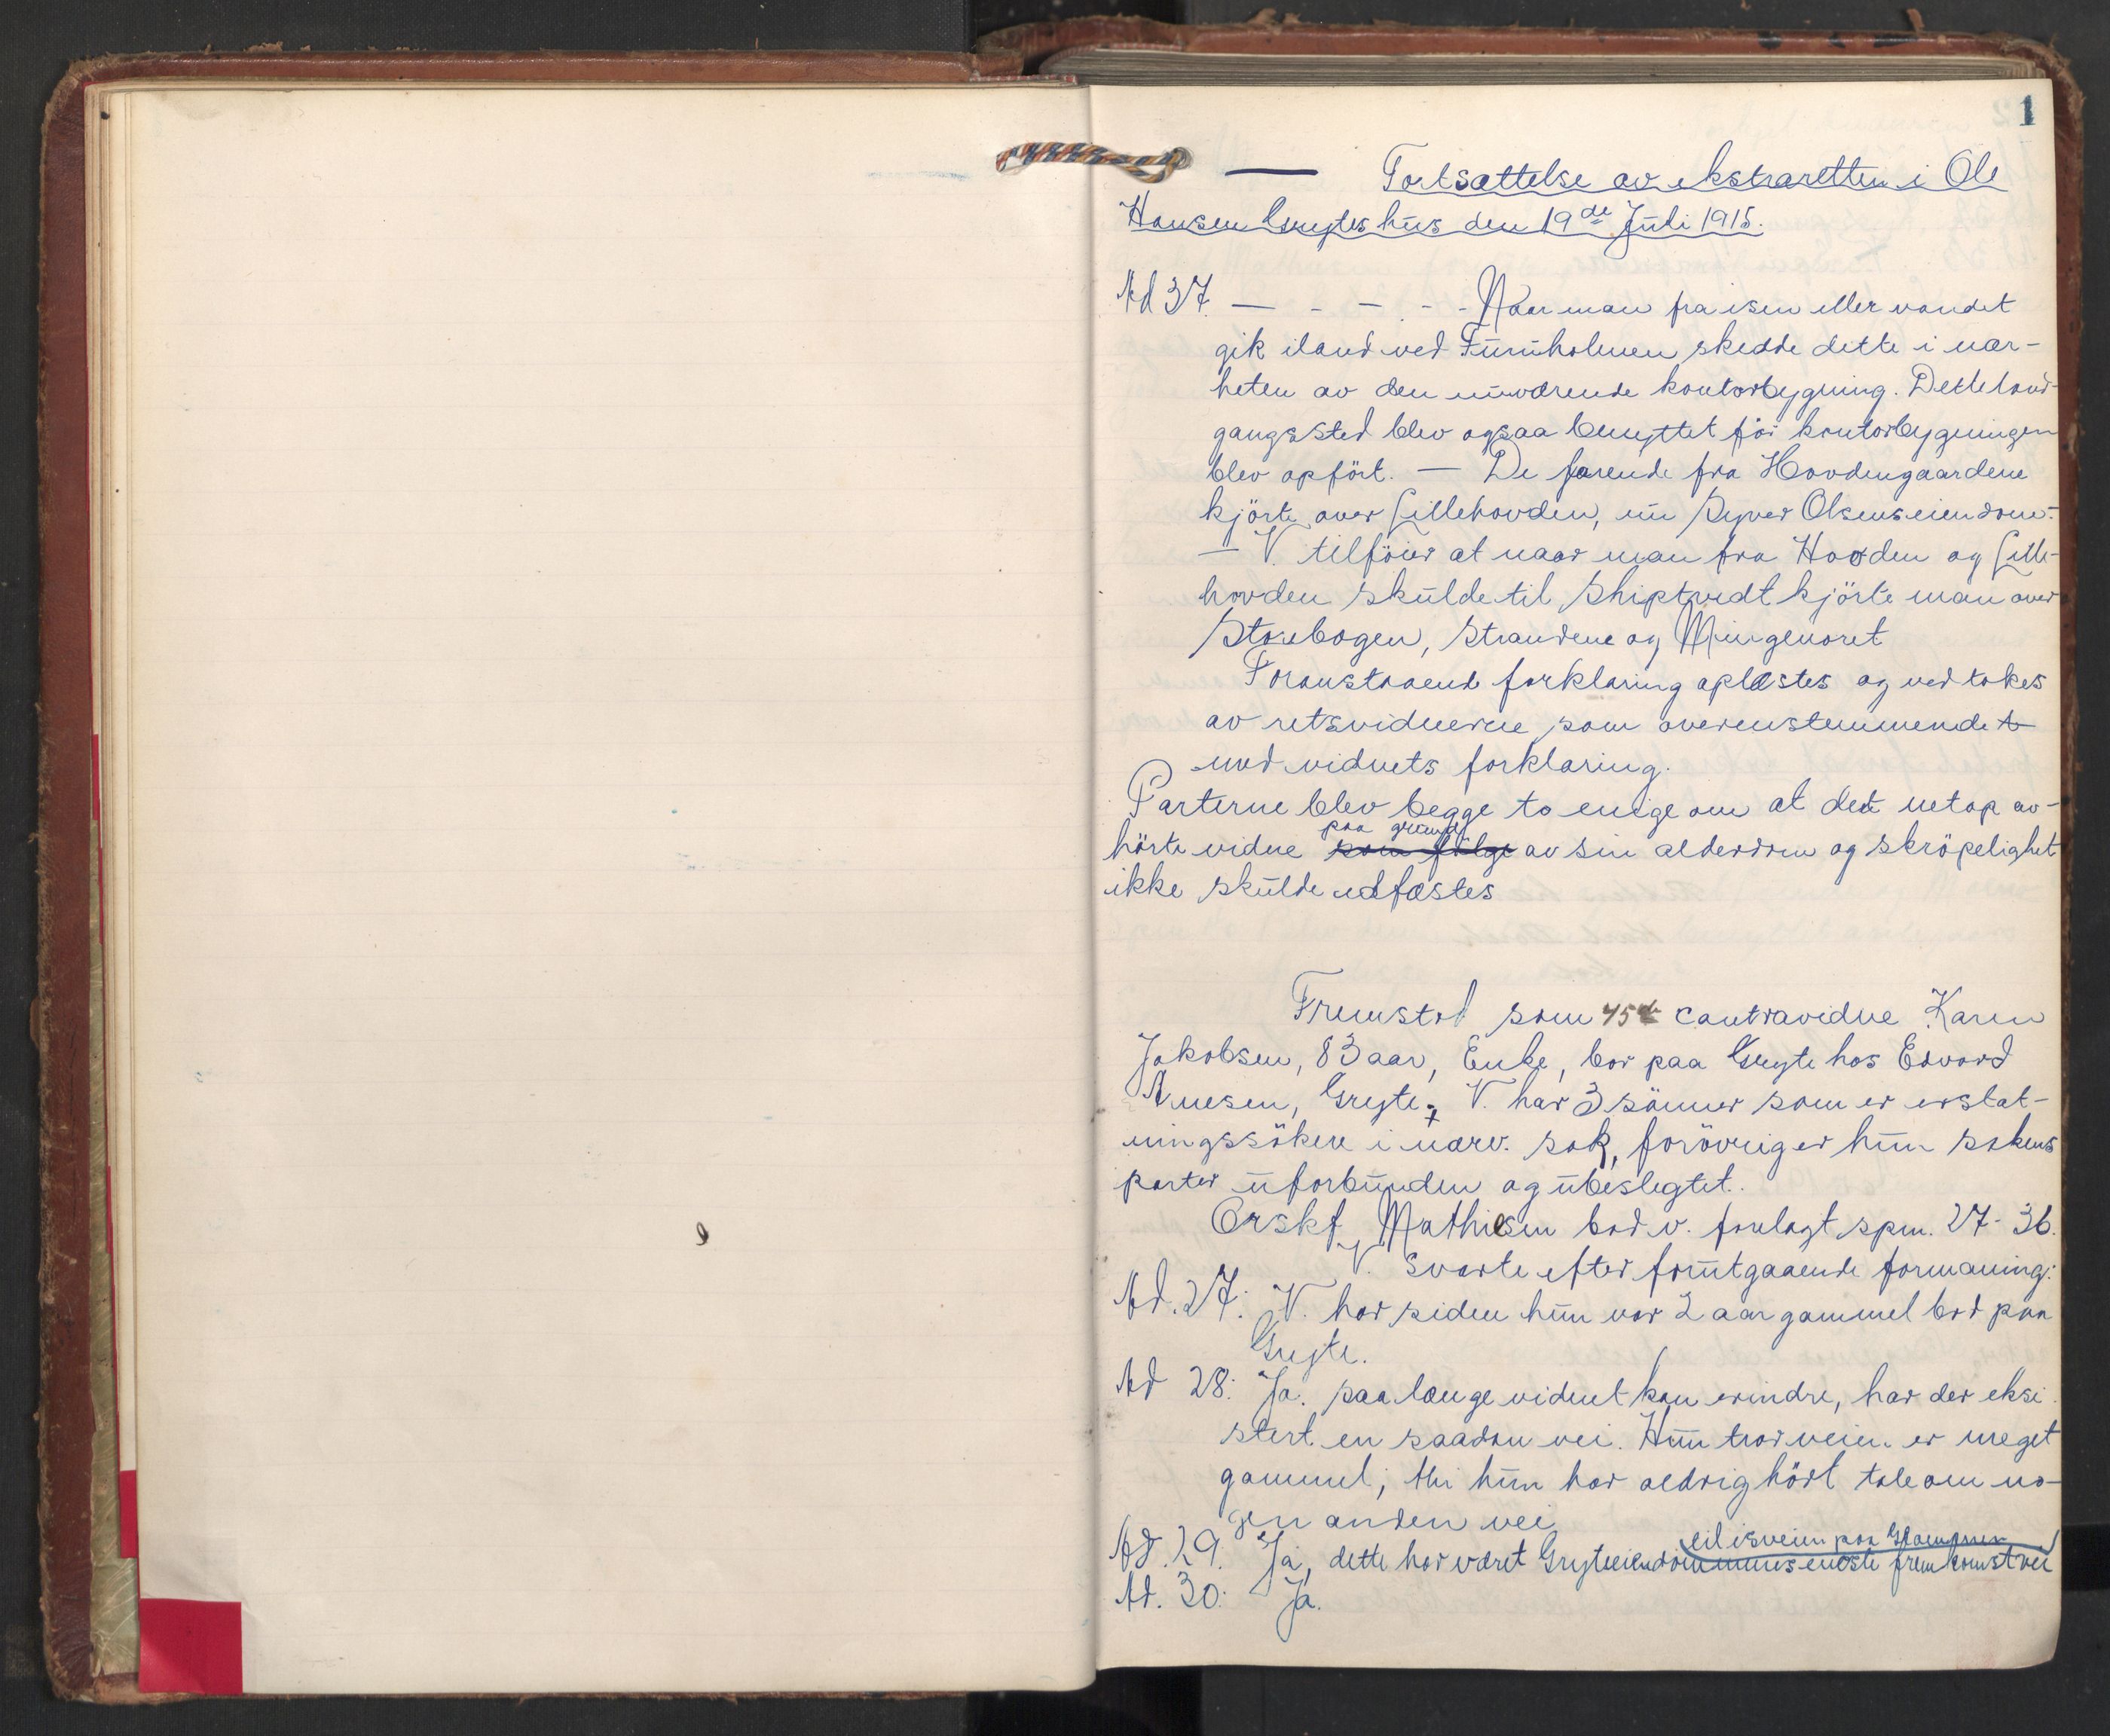 1
— Fortsættelse av ekstraretten i Ole
Hansen Grytes hus den 19de Juli 1915.
Ad 37. — - — - - Naar man fra isen eller vandet
gik iland ved Furuholmen skedde dette i nær-
heten av den nuværende kontorbygning. Dette land-
gangssted blev ogsaa benyttet før kontorbygningen
blev opført. — De farende fra Hovdengaardene
kjørte over Lillehovden, nu Syver Olsens eiendom.
— V. tilføier at naar man fra Hovden og Lille-
hovden skulde til Skiptvedt kjørte man over
Storebogen, Strandene og Mingenoret
Foranstaaende forklaring oplæstes og vedtokes
av retsvidnerne som overenstemmende
med vidnets forklaring.
Parterne blev begge to enige om at det netop av-
hørte vidne paa grund av sin alderdom og skrøpelighet
som følge
ikke skulde edfæstes
Fremstod som 45de contravidne Karen
Jakobsen, 83 aar, Enke, bor paa Gryte hos Edvard
Arnesen, Gryte; V. har 3 sönner som er erstat-
ningssökere i nærv. sak, forövrig er hun sakens
parter uforbunden og ubeslegtet.
Orskf. Mathisen bad v. forelagt spm. 27 - 36.
V. svarte efter forutgaaende formaning:
Ad. 27: V. har siden hun var 2 aar gammel bod paa
Gryte.
Ad 28: Ja. saa længe vidnet kan erindre, har der eksi-
stert en saadan vei. Hun tror veien er meget
gammel; thi hun har aldrig hört tale om no-
gen anden vei
til isveien paa Glommen
Ad. 29. Ja, dette har været Gryteeiendommens eneste fremkomstvei
Ad. 30: Ja.